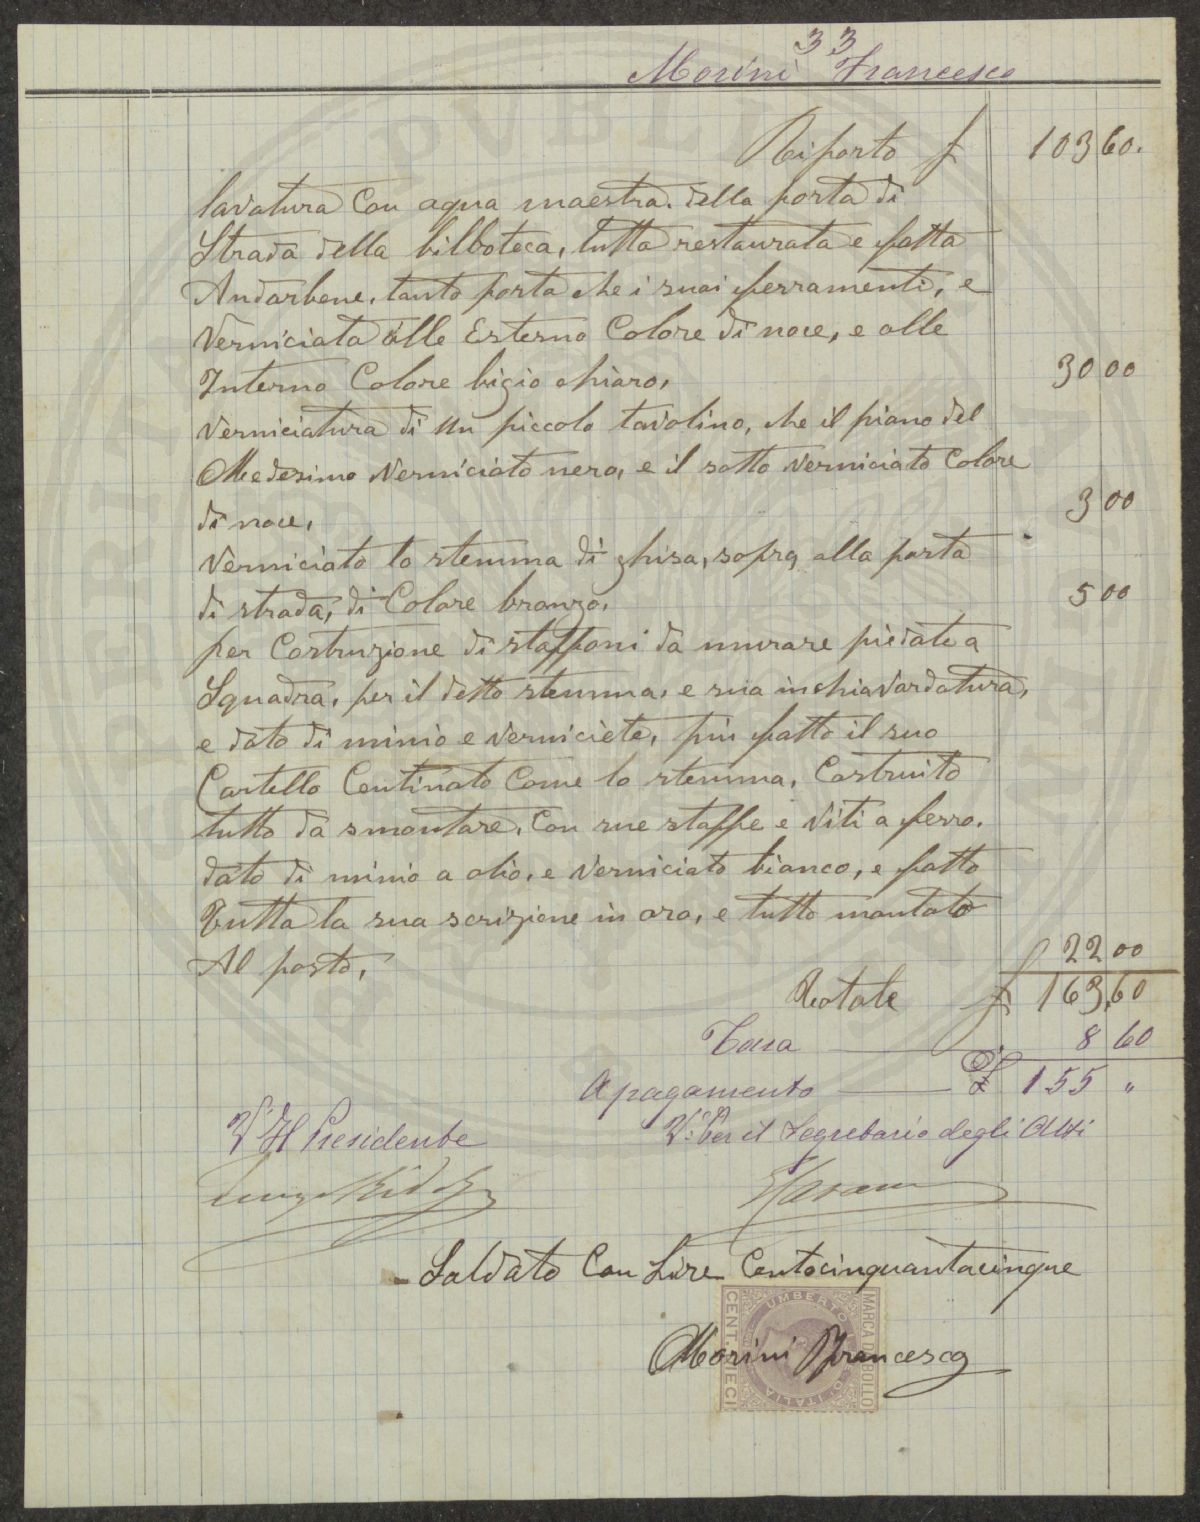 33
Morini Francesco
Riporto £ 103 60.
lavatura Con aqua maestra. della porta di
Strada della bilboteca, tutta restaurata e fatta
Andarbene, tanto porta che i suoi ferramenti, e
Verniciata alle Esterno Colore di noce, e alle
Interno Colore bigio chiaro, 30 00
Verniciatura di un piccolo tavolino, che il piano del
Medesimo Verniciato nero, e il sotto Verniciato Colore
di noce, 3 00
Verniciato lo stemma di ghisa, sopra alla porta
di strada, di Colore bronzo, 5 00
per Costruzione di staffoni da murare piedate a
Squadra, per il detto stemma, e sua inchiavardatura,
e dato di minio e verniciete, più fatto il suo
Cartello Centinato Come lo stemma, Costruito
tutto da smontare, Con sue staffe e Viti a ferro.
dato di minio a olio, e Verniciato bianco, e fatto
Tutta la sua scrizione in oro, e tutto montato
Al posto, £ 22 00
Totale £ 163,60
Tara 8 60
A pagamento £ 155 "
V° Il Presidente
V° Per il Segretario degli Atti
Saldato Con Lire Centocinquantacinque
MARCA DA BOLLO
UMBERTO
D'ITALIA
CENT. DIECI
Morini Francesco